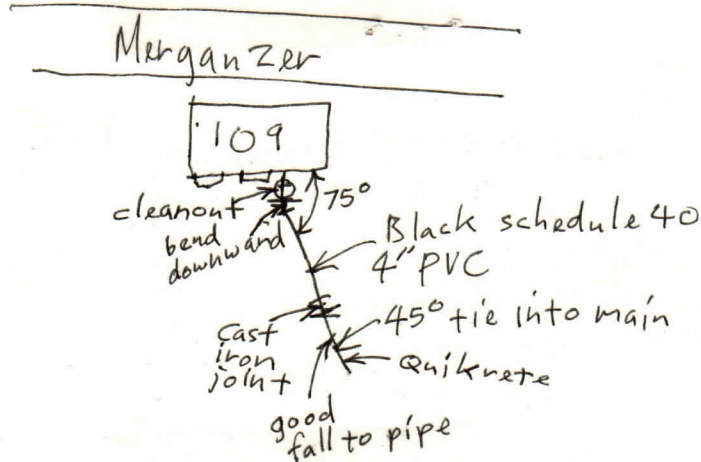 Merganzer
109
cleanout
75°
bend
downward
Black schedule 40
4" PVC
Cast
iron
joint
45° tie into main
Quikrete
good
fall to pipe